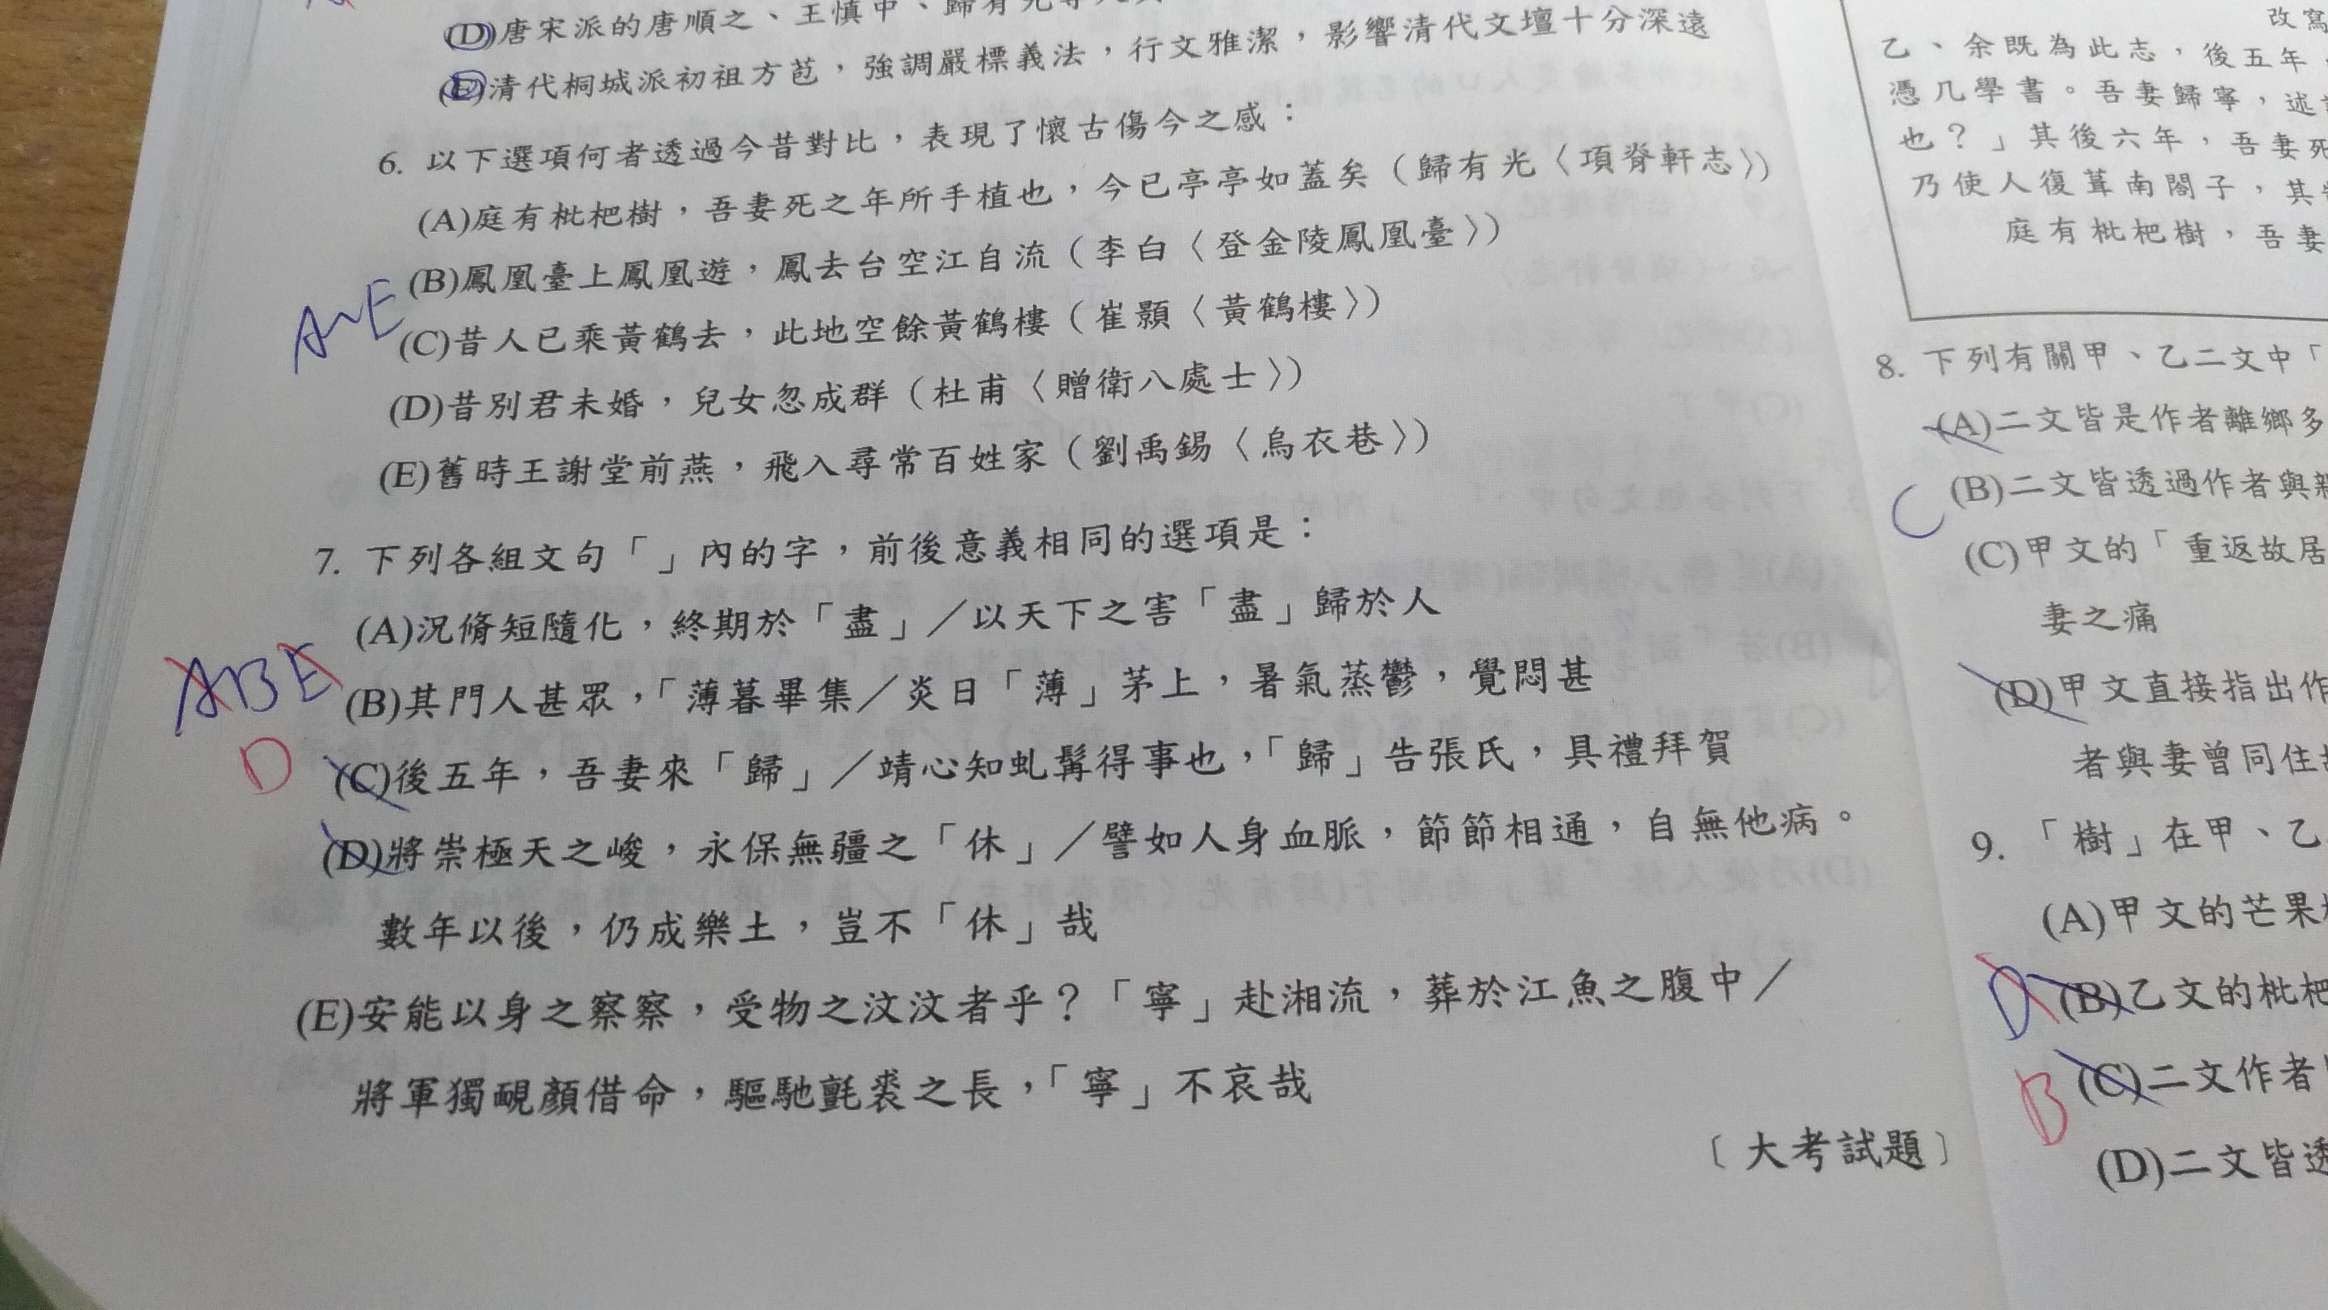 (D)唐宋派的唐順之、王慎中、歸有光
(E)清代桐城派初祖方苞，強調嚴標義法，行文雅潔，影響清代文壇十分深遠
6. 以下選項何者透過今昔對比，表現了懷古傷今之感：
(A)庭有枇杷樹，吾妻死之年所手植也，今已亭亭如蓋矣（歸有光〈項脊軒志〉）
(B)鳳凰臺上鳳凰遊，鳳去台空江自流（李白〈登金陵鳳凰臺〉）
A~E
(C)昔人已乘黃鶴去，此地空餘黃鶴樓（崔顥〈黃鶴樓〉）
(D)昔別君未婚，兒女忽成群（杜甫〈贈衛八處士〉）
(E)舊時王謝堂前燕，飛入尋常百姓家（劉禹錫〈烏衣巷〉）
7. 下列各組文句「」內的字，前後意義相同的選項是：
(A)況脩短隨化，終期於「盡」／以天下之害「盡」歸於人
ABE
(B)其門人甚眾，「薄暮畢集／炎日「薄」茅上，暑氣蒸鬱，覺悶甚
D
(C)後五年，吾妻來「歸」／靖心知虬髯得事也，「歸」告張氏，具禮拜賀
(D)將崇極天之峻，永保無疆之「休」／譬如人身血脈，節節相通，自無他病。
數年以後，仍成樂土，豈不「休」哉
(E)安能以身之察察，受物之汶汶者乎？「寧」赴湘流，葬於江魚之腹中／
將軍獨靦顏借命，驅馳氈裘之長，「寧」不哀哉
〔大考試題〕
改寫
乙、余既為此志，後五年，
憑几學書。吾妻歸寧，述
也？」其後六年，吾妻死
乃使人復葺南閤子，其
庭有枇杷樹，吾妻
8. 下列有關甲、乙二文中「
(A)二文皆是作者離鄉多
C
(B)二文皆透過作者與
(C)甲文的「重返故居
妻之痛
(D)甲文直接指出作
者與妻曾同住
9. 「樹」在甲、乙
(A)甲文的芒果
D
(B)乙文的枇杷
B
(C)二文作者
(D)二文皆透